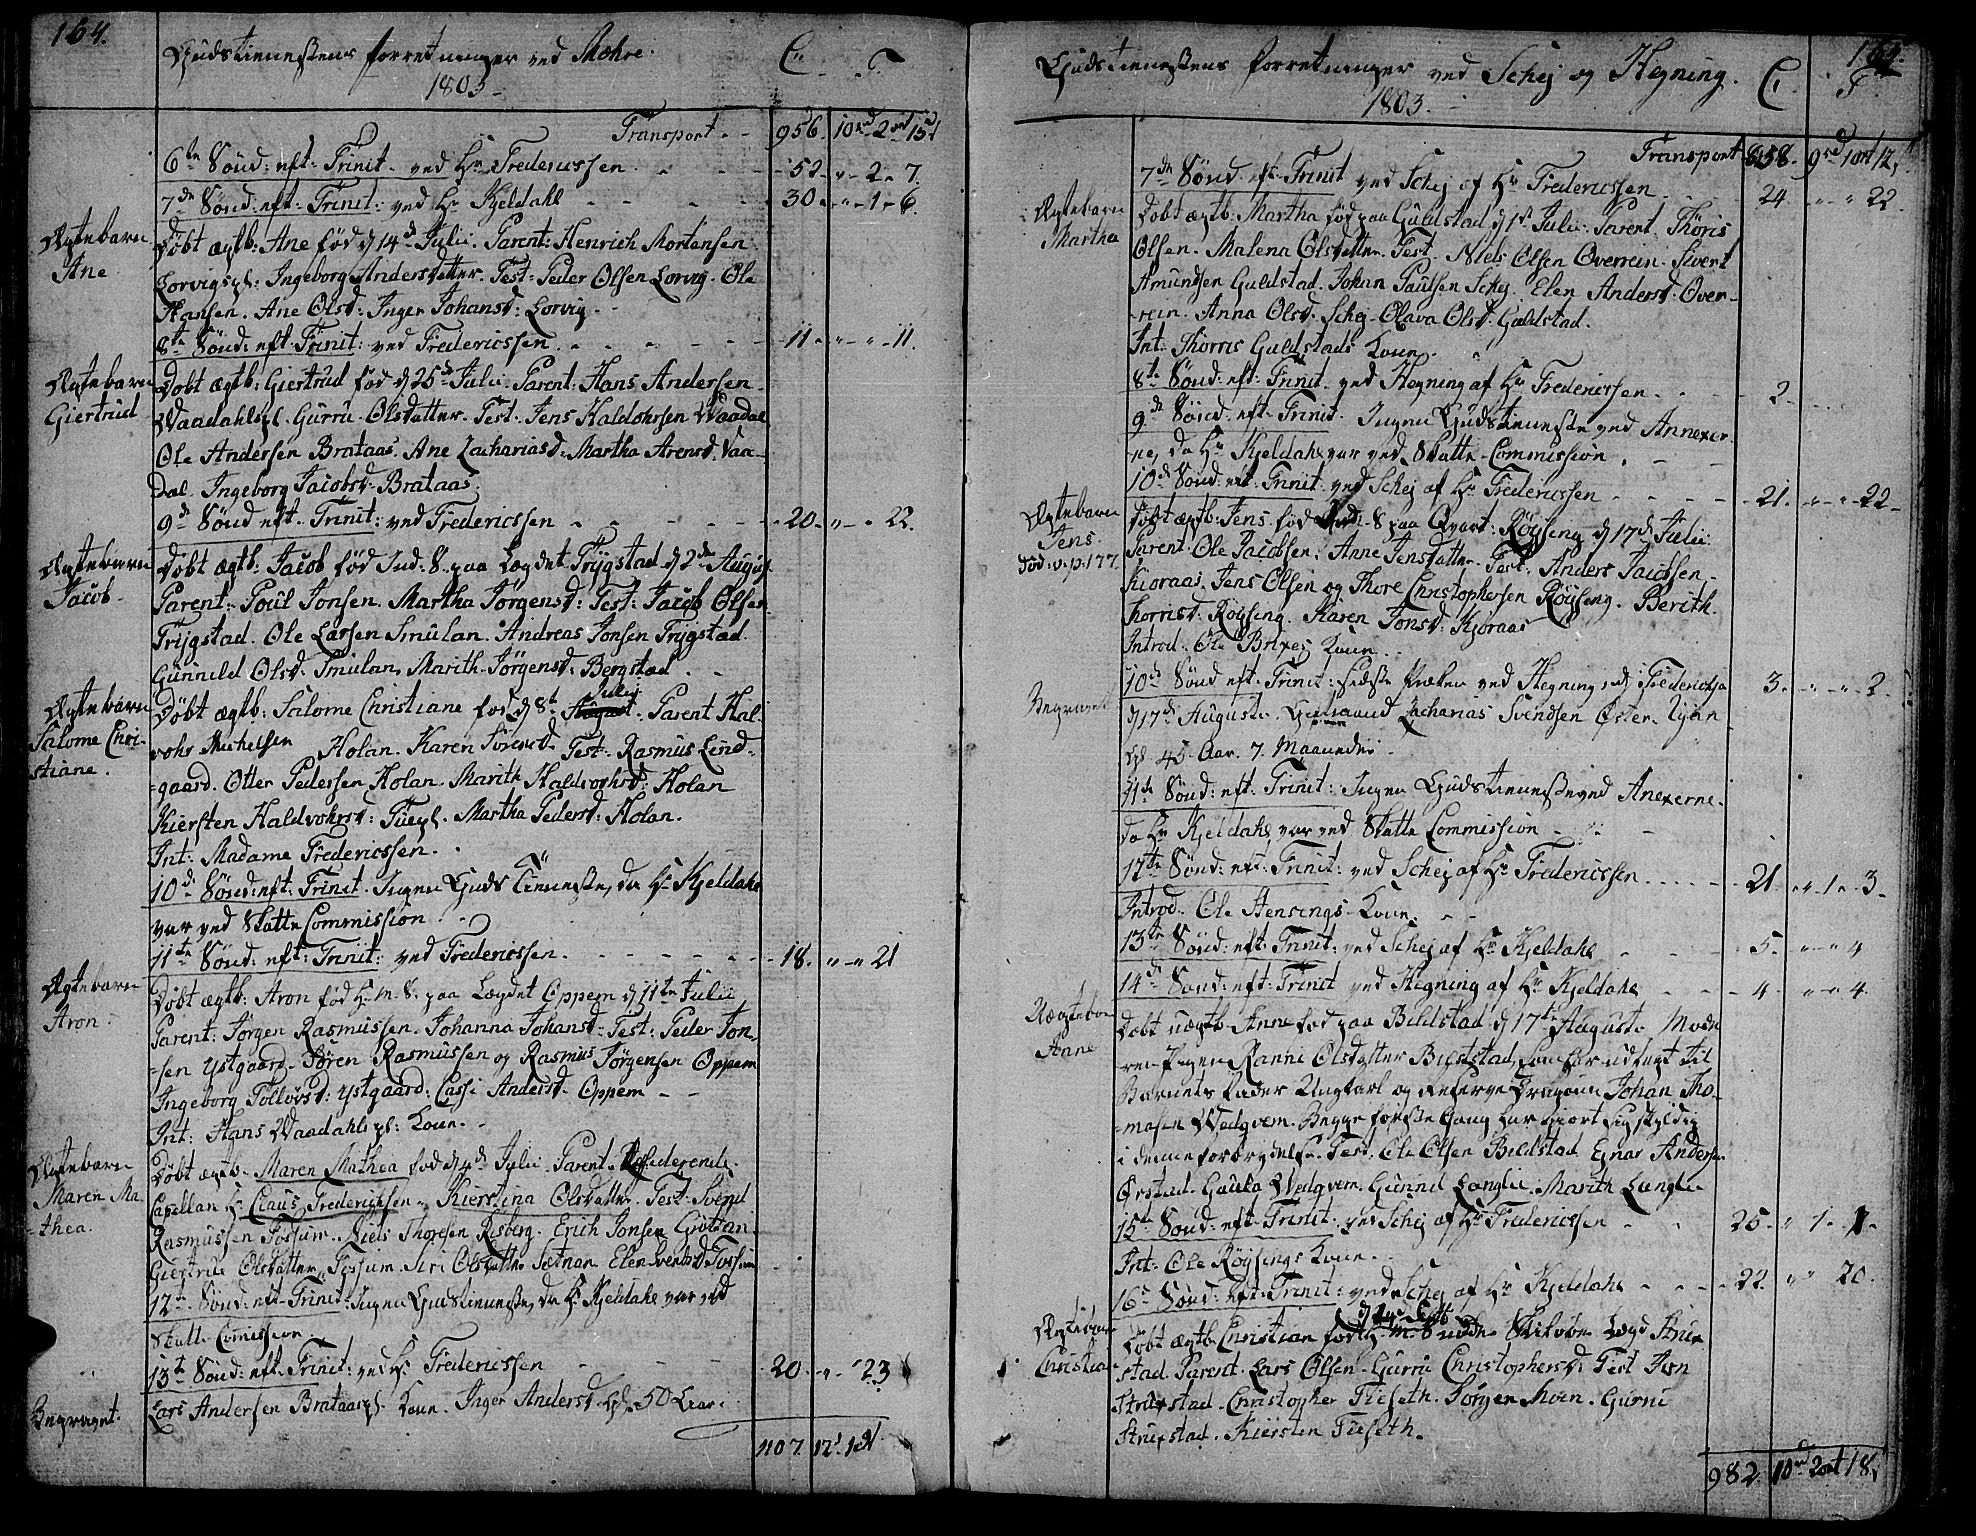 164.
Gudstienestens forretninger ved Mære.
1803.
C. T.
Transport 956. 10 rd 2 ort 15 s
6te Sönd: eft: Trinit. ved Hr Fredericssen 52 " 2 " 7.
7de Sönd: eft: Trinit: ved Hr Kjeldahl 30 " 1 " 6.
Ægtebarn
Ane
Döbt ægtb: Ane föd d 14d Julii. Parent: Henrich Mortensen
Lorvigspl: Ingeborg Andersdatter. Test: Peder Olsen Lorvig. Ole
Hansen. Ane Olsd: Inger Johansd: Lorvig.
8de Sönd: eft: Trinit: ved Fredericssen 11 " " 11.
Ægtebarn
Giertrud
Döbt ægtb: Giertrud föd d 25d Julii. Parent: Hans Andersen
Waadahlspl. Gurru Olsdatter. Test. Jens Haldohrsen Waadal
Ole Andersen Brataas. Ane Zachariasd: Martha Arensd. Vaa-
dal. Ingeborg Jacobsd: Brataas.
9de Sönd eft. Trinit: ved Fredericssen 20 " " 22.
Ægtebarn
Jacob
Döbt ægtb: Jacob föd Ind: S. paa Legdet Trygstad d 2de August
Parent: Poul Jonsen. Martha Jörgensd: Test: Jacob Olsen
Trygstad. Ole Larsen Smulan. Andreas Jonsen Trygstad.
Gunnild Olsd: Smulan. Marith Jörgensd: Bergstad
Ægtebarn
Salome Chri-
stiane.
Julii
Döbt ægtb: Salome Christiane föd d 8t August. Parent Hal-
vohr Michelsen Holan. Karen Sörensd. Test. Rasmus Lind-
gaard. Otter Pedersen Holan. Marith Haldvohrsd: Holan
Kiersten Haldvohrsd: Tuepl. Martha Pedersd: Holan.
Int: Madame Fredericssen.
10de Sönd: eft: Trinit. Ingen Guds Tieneste, da Hr Kjeldahl
var ved Skatte Commission
11te Sönd: eft: Trinit: ved Fredericssen. 18. " " 21
Ægtebarn
Aron
Döbt ægtb: Aron föd H. M. S. paa Legdet Oppem d 11te Julii
Parent: Jörgen Rasmussen. Johanna Johansd: Test: Peder Jon-
sen Ystgaard. Sören Rasmussen og Rasmus Jörgensen Oppem
Ingeborg Tollövsd: Ystgaard: Cassi Andersd. Oppem
Int: Hans Waadahlspl: Kone.
Ægtebarn
Maren Ma-
thea.
Döbt ægtb. Maren Mathea föd d 4d Julii. Parent. Residerende
Capellan Hr Claus Fredericssen. Kierstina Olsdatter. Test. Svend
Rasmussen Fossum. Niels Thoresen Risberg. Erich Jonsen
Giertrue Olsdatter Fossum. Siri Olsdatter Sætnan. Elen Svendsd. Fossum
12te Sönd: eft. Trinit: Ingen Gudstieneste, da Hr Kjeldahl var ved
Skatte Comission.
13te Sönd: eft. Trinit: ved Hr Fredericssen 20. " " 23
Begravet.
Lars Andersen Brataaspl. Kone. Inger Andersd. gl. 50 Aar.
1107. 12
165.
Gudstienestens forretninger ved Schej og Hegning.
1803.
C. T
Transport 858. 9 rd 1 ort 12
7de Sönd. eft. Trinit ved Schej af Hr Fredericssen 24 " " 22
Ægtebarn
Martha
Döbt ægtb. Martha föd paa Guldstad d 1st Julii. Parent. Thöris
Olsen. Malena Olsdatter. Test. Niels Olsen Overrein. Sivert
Amundsen Guldstad. Johan Paulsen Schej. Elen Andersd. Over-
rein. Anna Olsd. Schej. Olava Olsd. Guldstad.
Int. Thorris Guldstads Kone.
8de Sönd: eft. Trinit. ved Hegning af Hr Fredericssen 2
9de Sönd. eft. Trinit. Ingen Gudstieneste ved Annexer-
ne, da Hr Kjeldahl var ved Skatte Commission
10de Sönd. eft. Trinit. ved Schej af Hr Fredericssen 21. " " 22
Ægtebarn
Jens.
död. v. p. 177.
Döbt ægtb. Jens föd Ind. S paa Qvart: Röysing d 17d Julii
Parent. Ole Jacobsen. Anne Jensdatter. Test. Anders Jacobsen
Kioraas. Jens Olsen og Thore Christophersen Röysing. Berith
Thorrisd. Röysing. Karen Jonsd: Kjoraas
Introd. Ole Kone.
10de Sönd eft. Trinit: sidste Præken ved Hegning, d Fredericssen 3. " " 2.
Begravet
d 17d Augusti. Gaardmand Zacharias Svendsen Öster
gl 45 Aar. 7. Maaneder.
11te Sönd: eft: Trinit: Ingen Gudstieneste ved Anexerne.
da Hr Kjeldahl var ved Skatte Commission
12te Sönd: eft: Trinit: ved Schej af Hr Fredericssen 21 " 1 " 3
Introd. Ole Hensings Kone.
13te Sönd: eft: Trinit: ved Schej af Hr Kjeldahl 5. " " 4
14d Sönd: eft: Trinit ved Hegning af Hr Kjeldahl 4 " " 4.
Uægtebarn
Anne
Döbt uægtb. Anne föd paa Bildstad d 17te Augusti. Mode-
ren Pigen Olsdatter Bildstad, som har udlagt til
Barnets Fader Ungkarl og Reserve Dragoun Johan Tho-
masen Wedgvem. Begge förste Gang har giort sig skyldig
i denne forbrydelse. Test. Ole Olsen Bildstad. Ejnar Andersen
Örstad. Gaula Wedgvem. Gunnil Langlie. Marith Langlie
15te Sönd: eft: Trinit: ved Schej af Hr Fredericssen 25. " 1.
Int. Ole Röysings Kone.
16de Sönd: eft: Trinit: ved Schej af Hr Kjeldahl 22 " " 20.
Ægtebarn
Christian
Döbt ægtb. Christian föd Hr M. S Legd Strux-
stad. Parent. Lars Olsen. Gurru Christophersd. Test Jon
Struxstad. Christopher Tueseth. Jörgen Moen. Gurru
Struxstad. Kiersten Tueseth.
982. 10 rd 2 ort 18